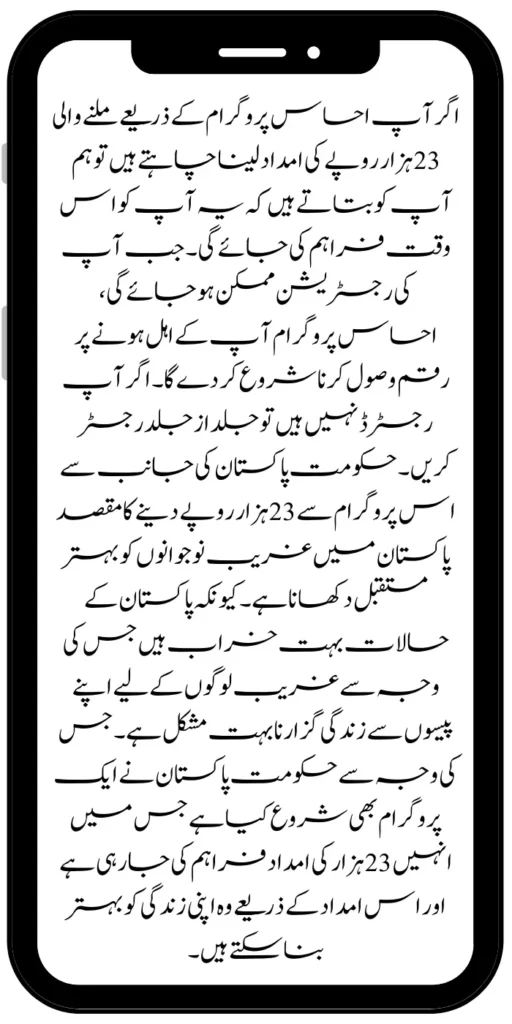 اگر آپ احساس پروگرام کے ذریعے ملنے والی
23ہزار روپے کی امداد لینا چاہتے ہیں تو ہم
آپ کو بتاتے ہیں کہ یہ آپ کو اس
وقت فراہم کی جائے گی۔ جب آپ
کی رجسٹریشن ممکن ہو جائے گی،
احساس پروگرام آپ کے اہل ہونے پر
رقم وصول کرنا شروع کر دے گا۔ اگر آپ
رجسٹرڈ نہیں ہیں تو جلد از جلد رجسٹر
کریں۔ حکومت پاکستان کی جانب سے
اس پروگرام سے 23ہزار روپے دینے کا مقصد
پاکستان میں غریب نوجوانوں کو بہتر
مستقبل دکھانا ہے۔ کیونکہ پاکستان کے
حالات بہت خراب ہیں جس کی
وجہ سے غریب لوگوں کے لیے اپنے
پیسوں سے زندگی گزارنا بہت مشکل ہے۔ جس
کی وجہ سے حکومت پاکستان نے ایک
پروگرام بھی شروع کیا ہے جس میں
انہیں 23ہزار کی امداد فراہم کی جا رہی ہے
اور اس امداد کے ذریعے وہ اپنی زندگی کو بہتر
بنا سکتے ہیں۔